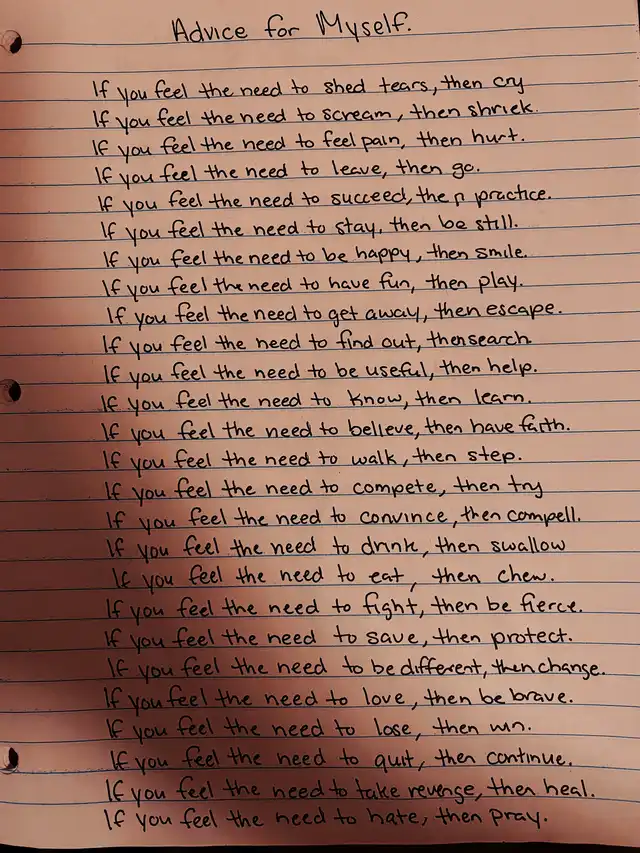 Advice for Myself.
If you feel the need to shed tears, then cry
If you feel the need to scream, then shriek.
If you feel the need to feel pain, then hurt.
If you feel the need to leave, then go.
If you feel the need to succeed, then practice.
If you feel the need to stay, then be still.
If you feel the need to be happy, then smile.
If you feel the need to have fun, then play.
If you feel the need to get away, then escape.
If you feel the need to find out, then search.
If you feel the need to be useful, then help.
If you feel the need to know, then learn.
If you feel the need to believe, then have faith.
If you feel the need to walk, then step.
If you feel the need to compete, then try
If you feel the need to convince, then compell.
If you feel the need to drink, then swallow
If you feel the need to eat, then chew.
If you feel the need to fight, then be fierce.
If you feel the need to save, then protect.
If you feel the need to be different, then change.
If you feel the need to love, then be brave.
If you feel the need to lose, then win.
If you feel the need to quit, then continue.
If you feel the need to take revenge, then heal.
If you feel the need to hate, then pray.